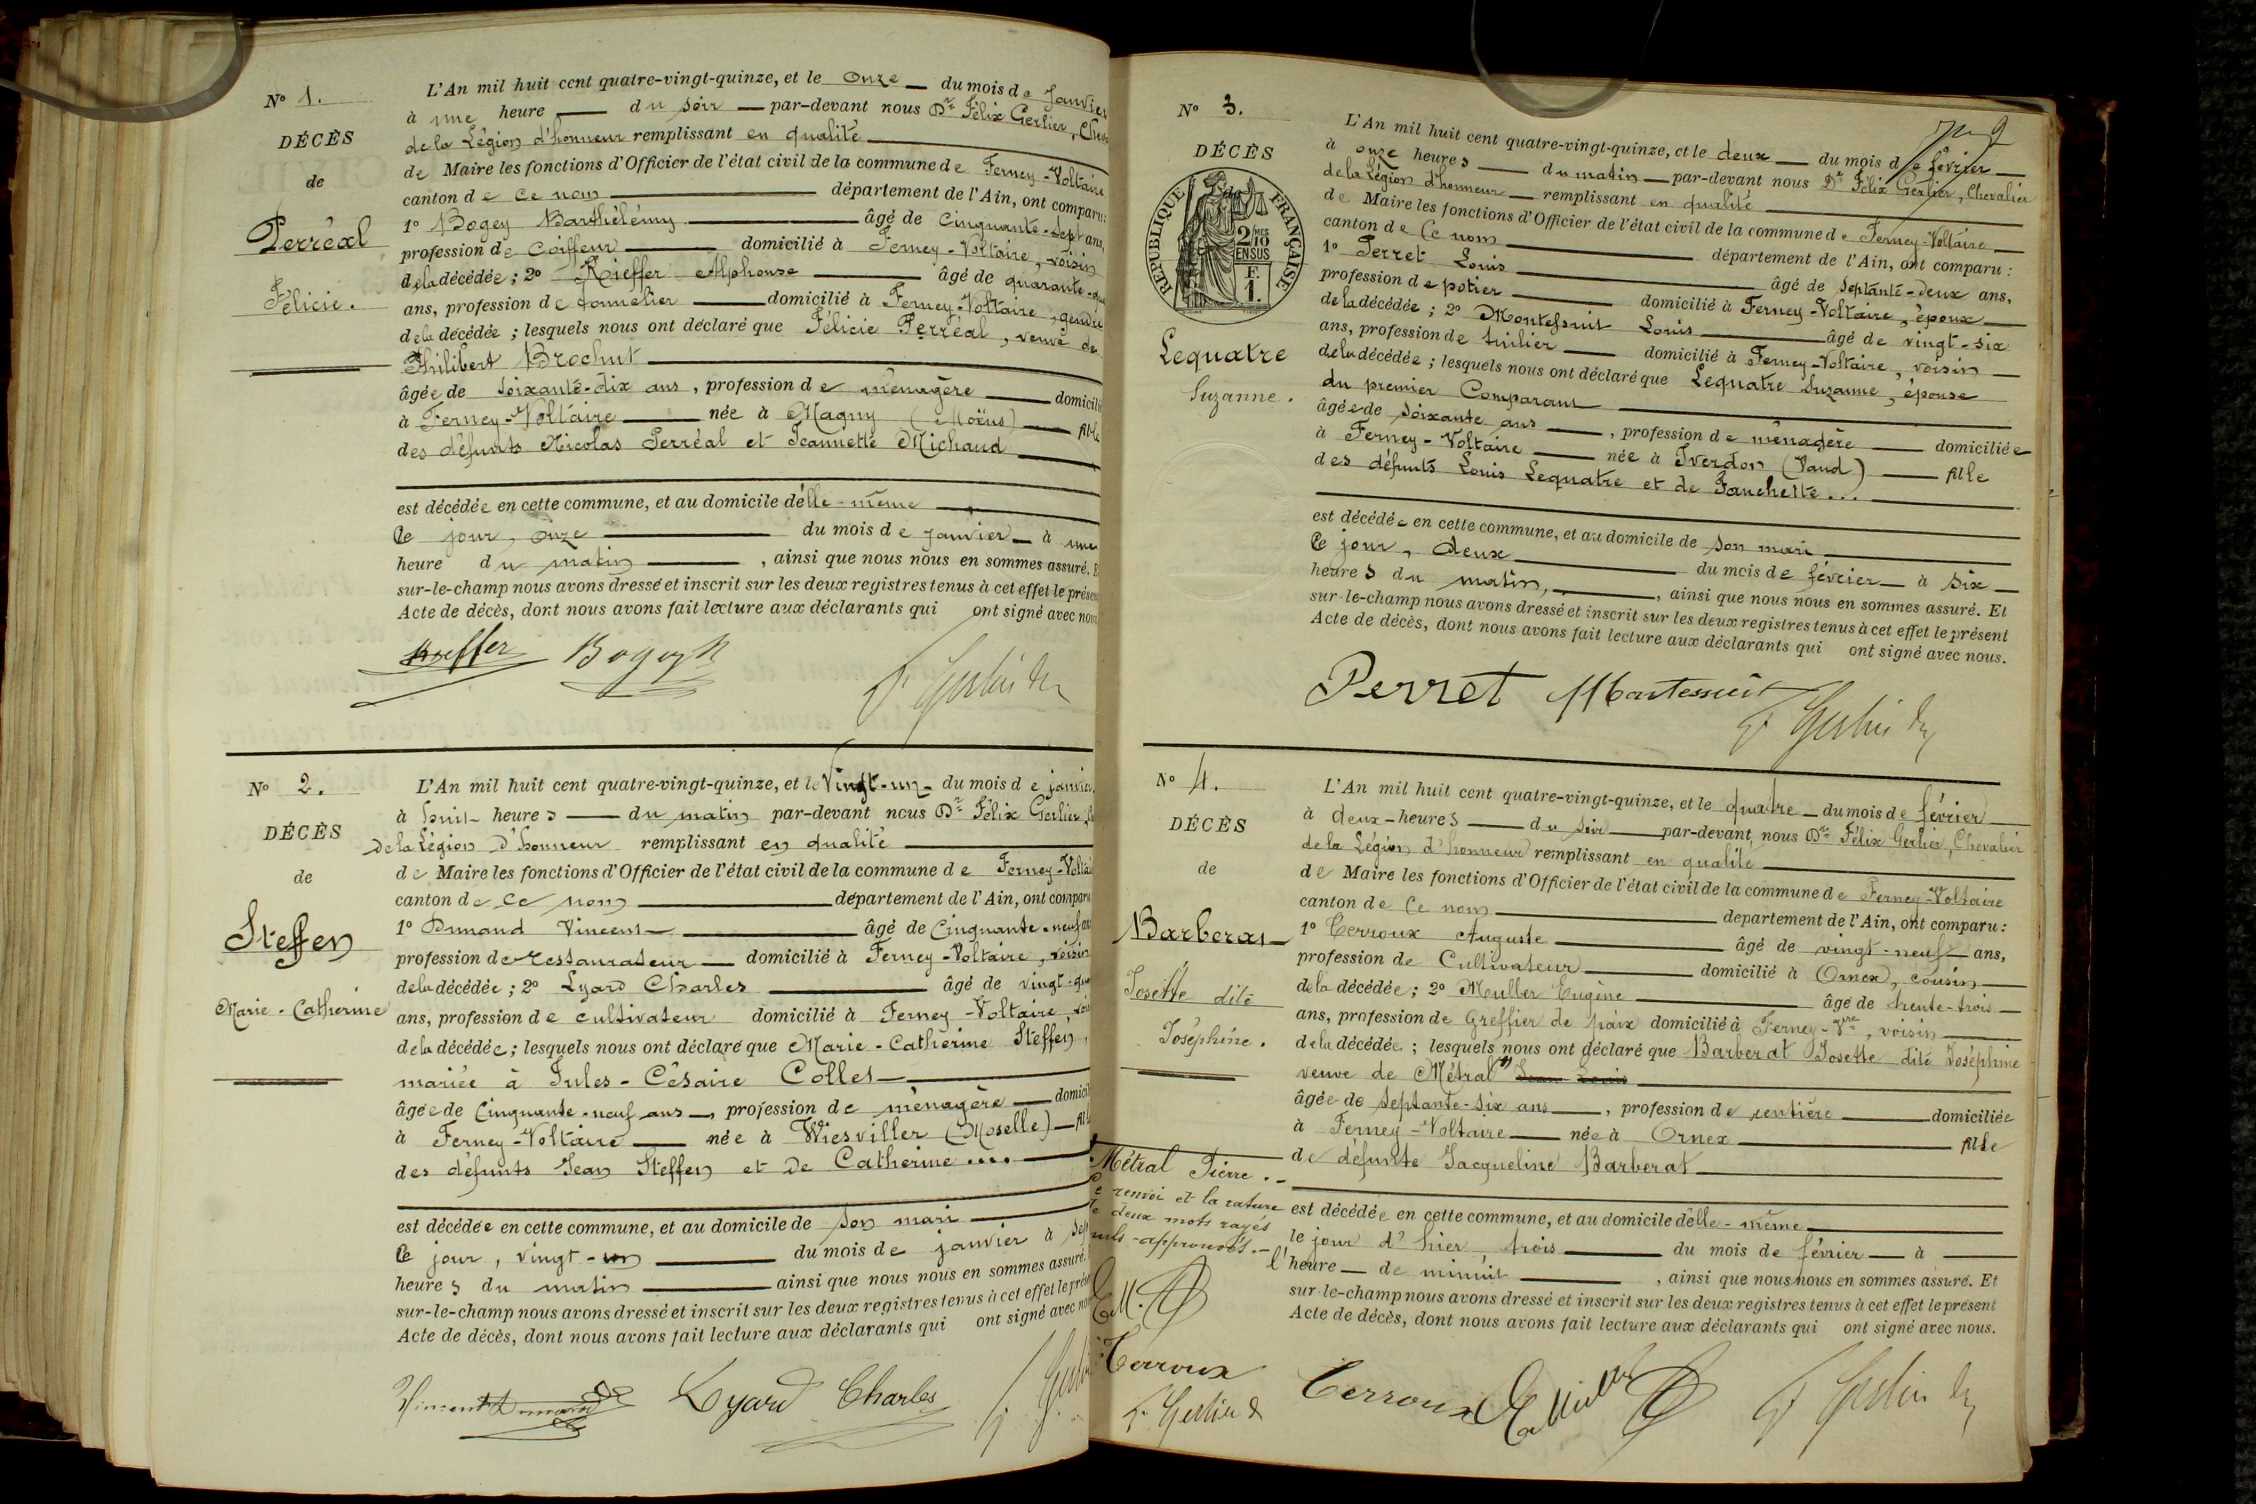 N° 1.
DÉCÈS
de
Perréal
Félicie.
L'An mil huit cent quatre-vingt-quinze, et le onze du mois de Janvier
à une heure du soir par-devant nous Dr Félix Gerlier,
de la Légion d'honneur remplissant en qualité
de Maire les fonctions d'Officier de l'état civil de la commune de Ferney-Voltaire
canton de ce nom département de l'Ain, ont comparu:
1° Bogey Barthélémy âgé de cinquante-sept ans,
profession de Coiffeur domicilié à Ferney-Voltaire, voisin
de la décédée; 2° Kieffer Alphonse âgé de quarante-
ans, profession de tonnelier domicilié à Ferney-Voltaire, gendre
de la décédée; lesquels nous ont déclaré que Félicie Perréal, veuve de
Philibert Brochut
âgée de soixante-dix ans, profession de ménagère domicilié
à Ferney-Voltaire née à Magny (Moëns) fille
des défunts Nicolas Perréal et Jeannette Michaud
est décédée en cette commune, et au domicile d'elle-même
ce jour, onze du mois de janvier à une
heure du matin, ainsi que nous nous en sommes assuré. E
sur-le-champ nous avons dressé et inscrit sur les deux registres tenus à cet effet le présen
Acte de décès, dont nous avons fait lecture aux déclarants qui ont signé avec nous
Kieffer Bogey
F. Gerlier Dr
N° 2.
DÉCÈS
de
Steffen
Marie-Catherine
L'An mil huit cent quatre-vingt-quinze, et le Vingt-un du mois de janvier
à huit heures du matin par-devant nous Dr Félix Gerlier,
de la Légion d'honneur remplissant en qualité
de Maire les fonctions d'Officier de l'état civil de la commune de Ferney-Voltai
canton de ce nom département de l'Ain, ont comparu
1° Dunand Vincent âgé de cinquante-neuf ans
profession de restaurateur domicilié à Ferney-Voltaire, voisin
de la décédée; 2° Lyard Charles âgé de vingt-
ans, profession de cultivateur domicilié à Ferney-Voltaire, voi
de la décédée; lesquels nous ont déclaré que Marie-Catherine Steffen,
mariée à Jules-Césaire Collet
âgée de cinquante-neuf ans, profession de ménagère domicil
à Ferney-Voltaire née à Wiesviller (Moselle) fil
des défunts Jean Steffen et de Catherine ....
est décédée en cette commune, et au domicile de son mari
ce jour, vingt-un du mois de janvier à sep
heures du matin ainsi que nous nous en sommes assuré.
sur-le-champ nous avons dressé et inscrit sur les deux registres tenus à cet effet le prése
Acte de décès, dont nous avons fait lecture aux déclarants qui ont signé avec nou
Vincent Dunand Lyard Charles F. Gerlier
N° 3.
DÉCÈS
de
RÉPUBLIQUE FRANÇAISE
2/10 MES
EN SUS
F.
1.
Lequatre
Suzanne.
L'An mil huit cent quatre-vingt-quinze, et le deux du mois de février
à onze heures du matin par-devant nous Dr Félix Gerlier, Chevalier
de la Légion d'honneur remplissant en qualité
de Maire les fonctions d'Officier de l'état civil de la commune de Ferney-Voltaire
canton de Ce nom département de l'Ain, ont comparu:
1° Perret Louis âgé de septante-deux ans,
profession de potier domicilié à Ferney-Voltaire, époux
de la décédée; 2° Montessuit Louis âgé de vingt-six
ans, profession de tuilier domicilié à Ferney-Voltaire, voisin
de la décédée; lesquels nous ont déclaré que Lequatre Suzanne, épouse
du premier Comparant
âgée de soixante ans, profession de ménagère domiciliée
à Ferney-Voltaire née à Yverdon (Vaud) fille
des défunts Louis Lequatre et de Fanchette...
est décédée en cette commune, et au domicile de son mari
ce jour, deux du mois de février à six
heures du matin, ainsi que nous nous en sommes assuré. Et
sur-le-champ nous avons dressé et inscrit sur les deux registres tenus à cet effet le présent
Acte de décès, dont nous avons fait lecture aux déclarants qui ont signé avec nous.
Perret Montessuit
F. Gerlier Dr
N° 4.
DÉCÈS
de
Barberat
Josette dite
Joséphine.
L'An mil huit cent quatre-vingt-quinze, et le quatre du mois de février
à deux heures du soir par-devant nous Dr Félix Gerlier, Chevalier
de la Légion d'honneur remplissant en qualité
de Maire les fonctions d'Officier de l'état civil de la commune de Ferney-Voltaire
canton de Ce nom département de l'Ain, ont comparu:
1° Terroux Auguste âgé de vingt-neuf ans,
profession de Cultivateur domicilié à Ornex, cousin
de la décédée; 2° Muller Eugène âgé de trente-trois
ans, profession de Greffier de paix domicilié à Ferney-Vre, voisin
de la décédée; lesquels nous ont déclaré que Barberat Josette dite Joséphine
veuve de Métral
âgée de septante-six ans, profession de rentière domiciliée
à Ferney-Voltaire née à Ornex fille
de défunte Jacqueline Barberat
est décédée en cette commune, et au domicile d'elle-même
le jour d'hier trois du mois de février à
l'heure de minuit, ainsi que nous nous en sommes assuré. Et
sur-le-champ nous avons dressé et inscrit sur les deux registres tenus à cet effet le présent
Acte de décès, dont nous avons fait lecture aux déclarants qui ont signé avec nous.
Métral Pierre.
renvoi et la rature
deux mots rayés
nuls approuvés.
E.M.
Terroux
F. Gerlier
Terroux E. Muller F. Gerlier Dr